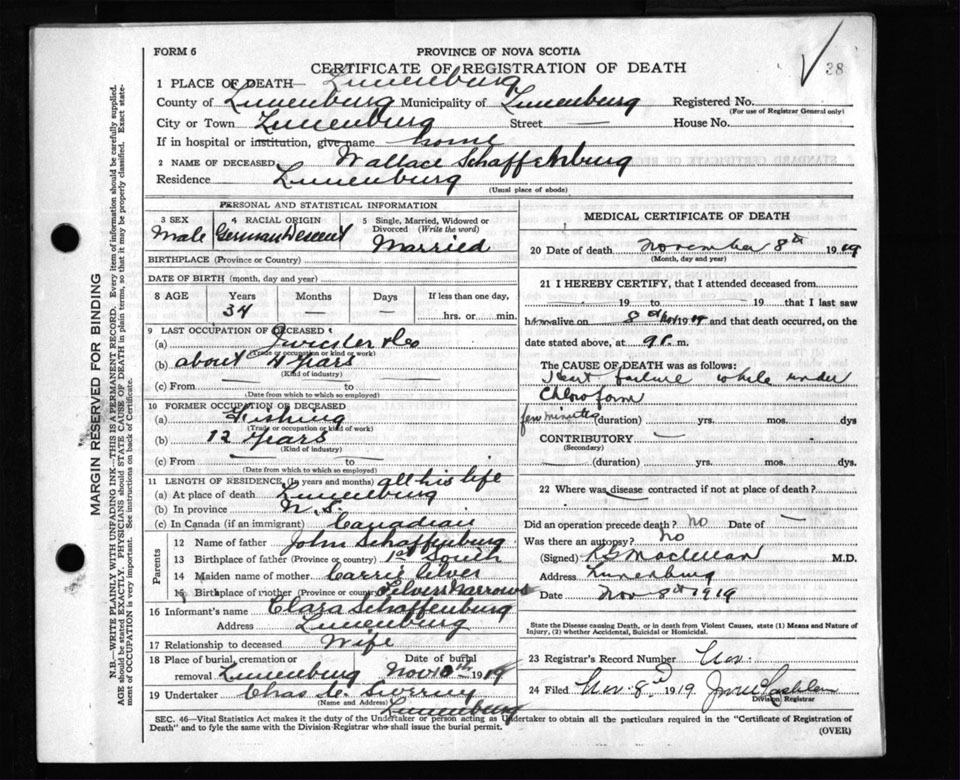 FORM 6
PROVINCE OF NOVA SCOTIA
CERTIFICATE OF REGISTRATION OF DEATH
38
1 PLACE OF DEATH— Lunenburg
County of Lunenburg Municipality of Lunenburg Registered No.
(For use of Registrar General only)
City or Town Lunenburg Street — House No.
If in hospital or institution, give name home
2 NAME OF DECEASED Wallace Schaffenburg
Residence Lunenburg
(Usual place of abode)
PERSONAL AND STATISTICAL INFORMATION
3 SEX 4 RACIAL ORIGIN 5 Single, Married, Widowed or
Divorced (Write the word)
Male German Descent Married
BIRTHPLACE (Province or Country)
DATE OF BIRTH (month, day and year)
8 AGE Years Months Days If less than one day,
34 — — hrs. or min.
9 LAST OCCUPATION OF DECEASED
(a)
(Trade or occupation or kind of work)
(b) about 4 years
(Kind of industry)
(c) From — to —
(Date from which to which so employed)
10 FORMER OCCUPATION OF DECEASED
(a) Fishing
(Trade or occupation or kind of work)
(b) 12 years
(Kind of industry)
(c) From — to —
(Date from which to which so employed)
11 LENGTH OF RESIDENCE (In years and months) all his life
(a) At place of death Lunenburg
(b) In province N.S.
(c) In Canada (if an immigrant) Canadian
Parents
12 Name of father John Schaffenburg
13 Birthplace of father (Province or country) 1st South
14 Maiden name of mother Carrie Silver
15 Birthplace of mother (Province or country) Narrows
16 Informant's name Clara Schaffenburg
Address Lunenburg
17 Relationship to deceased Wife
18 Place of burial, cremation or Date of burial
removal Lunenburg Nov 10th 1919
19 Undertaker Chas
(Name and Address) Lunenburg
MEDICAL CERTIFICATE OF DEATH
20 Date of death November 8th 1919
(Month, day and year)
21 I HEREBY CERTIFY, that I attended deceased from
19 to 19 that I last saw
him alive on 8 Nov 1919 and that death occurred, on the
date stated above, at 9 P. m.
The CAUSE OF DEATH was as follows:
Heart failure while under
Chloroform
few minutes (duration) yrs. mos. dys
CONTRIBUTORY —
(Secondary)
(duration) yrs. mos. dys.
22 Where was disease contracted if not at place of death?
Did an operation precede death? no Date of —
Was there an autopsy? No
(Signed) M.D.
Address Lunenburg
Date Nov 8th 1919
State the Disease causing Death, or in death from Violent Causes, state (1) Means and Nature of
Injury, (2) whether Accidental, Suicidal or Homicidal.
23 Registrar's Record Number
24 Filed Nov. 8 1919
Division Registrar
SEC. 46—Vital Statistics Act makes it the duty of the Undertaker or person acting as Undertaker to obtain all the particulars required in the "Certificate of Registration of
Death" and to fyle the same with the Division Registrar who shall issue the burial permit.
(OVER)
MARGIN RESERVED FOR BINDING
N.B.—WRITE PLAINLY WITH UNFADING INK—THIS IS A PERMANENT RECORD. Every item of information should be carefully supplied.
AGE should be stated EXACTLY. PHYSICIANS should STATE CAUSE OF DEATH in plain terms, so that it may be properly classified. Exact state-
ment of OCCUPATION is very important. See instructions on back of Certificate.